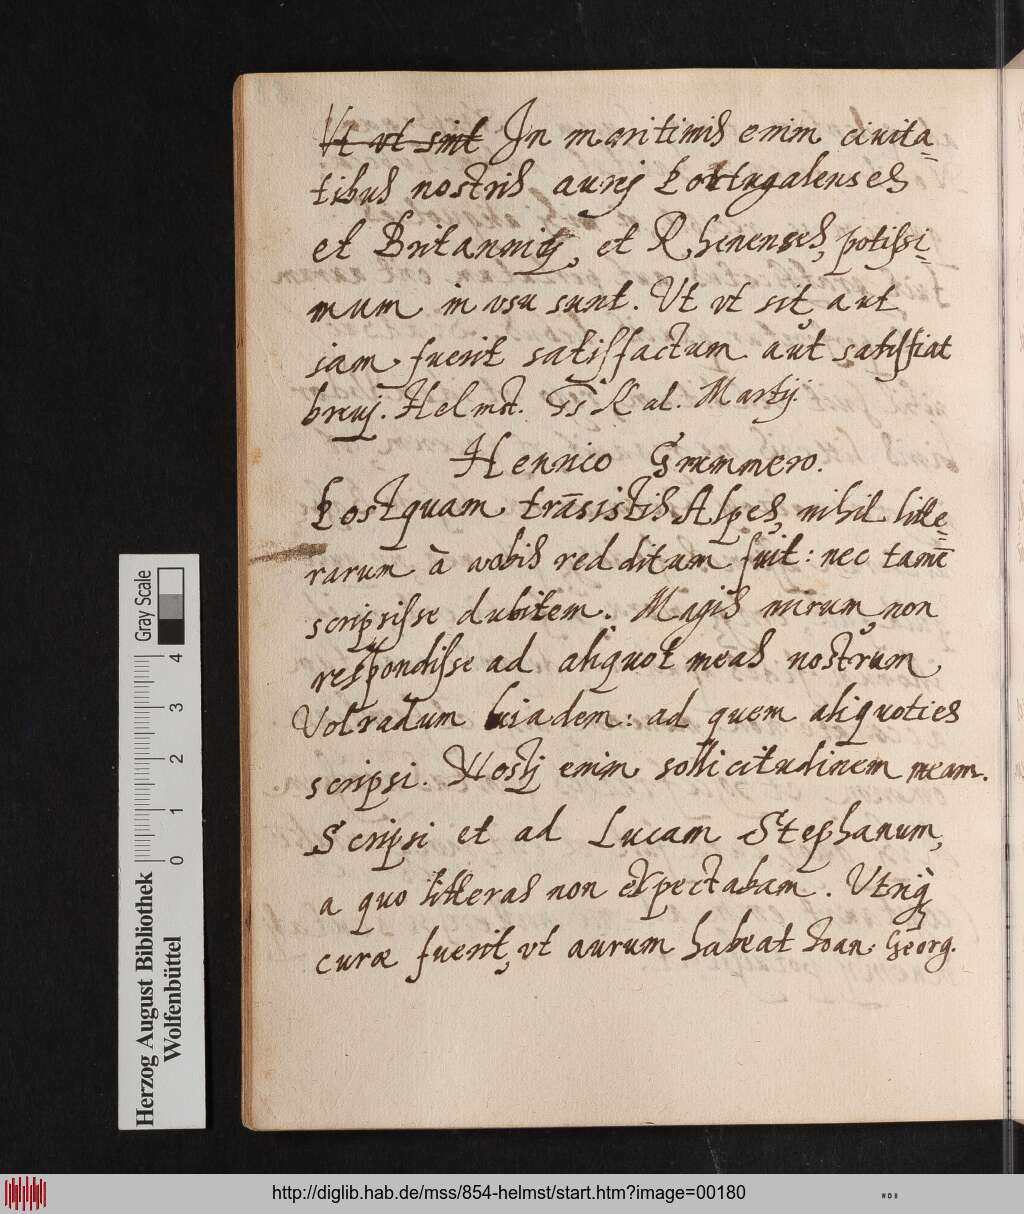 Vt vt sint In maritimis enim ciuita=
tibus nostris aurei Portugalenses
et Britannici, et Rhenenses, potissi=
mum in vsu sunt. Vt vt sit, aut
iam fuerit satisfactum aut satisfiat
breui. Helmst. Kal. Martij.
Henrico Grummero.
Postquam trāsistis Alpes, nihil litte=
rarum à vobis redditum fuit: nec tamē
scripsisse dubitem. Magis mirum, non
respondisse ad aliquot meas nostrum
Volradum ibidem: ad quem aliquoties
scripsi. Nosti enim sollicitudinem meam.
Scripsi et ad Lucam Stephanum,
a quo litteras non expectabam. Vtriq
curæ fuerit, vt aurum habeat Ioan. Georg.
Herzog August Bibliothek
Wolfenbüttel
Gray Scale
0 1 2 3 4
http://diglib.hab.de/mss/854-helmst/start.htm?image=00180